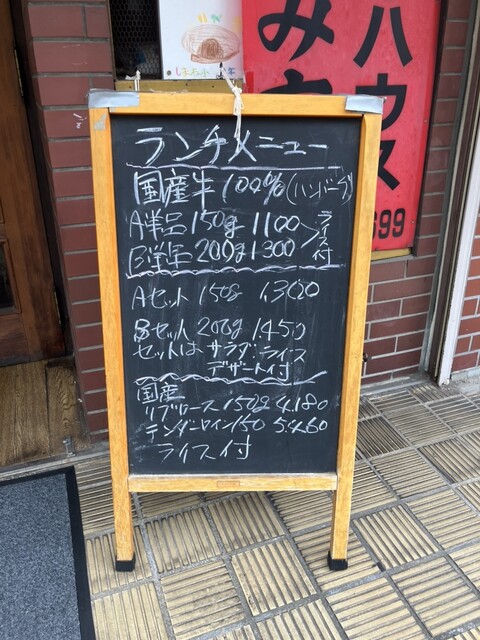 しまね小
みそ
ハウス
699
ランチメニュー
国産牛100%(ハンバーグ)
A単品 150g 1100
B単品 200g 1300
ライス付
Aセット 150g 1300
Bセット 200g 1450
セットは サラダ・ライス
デザート付
国産
リブロース 150g 4.180
テンダーロイン 150 5460
ライス付